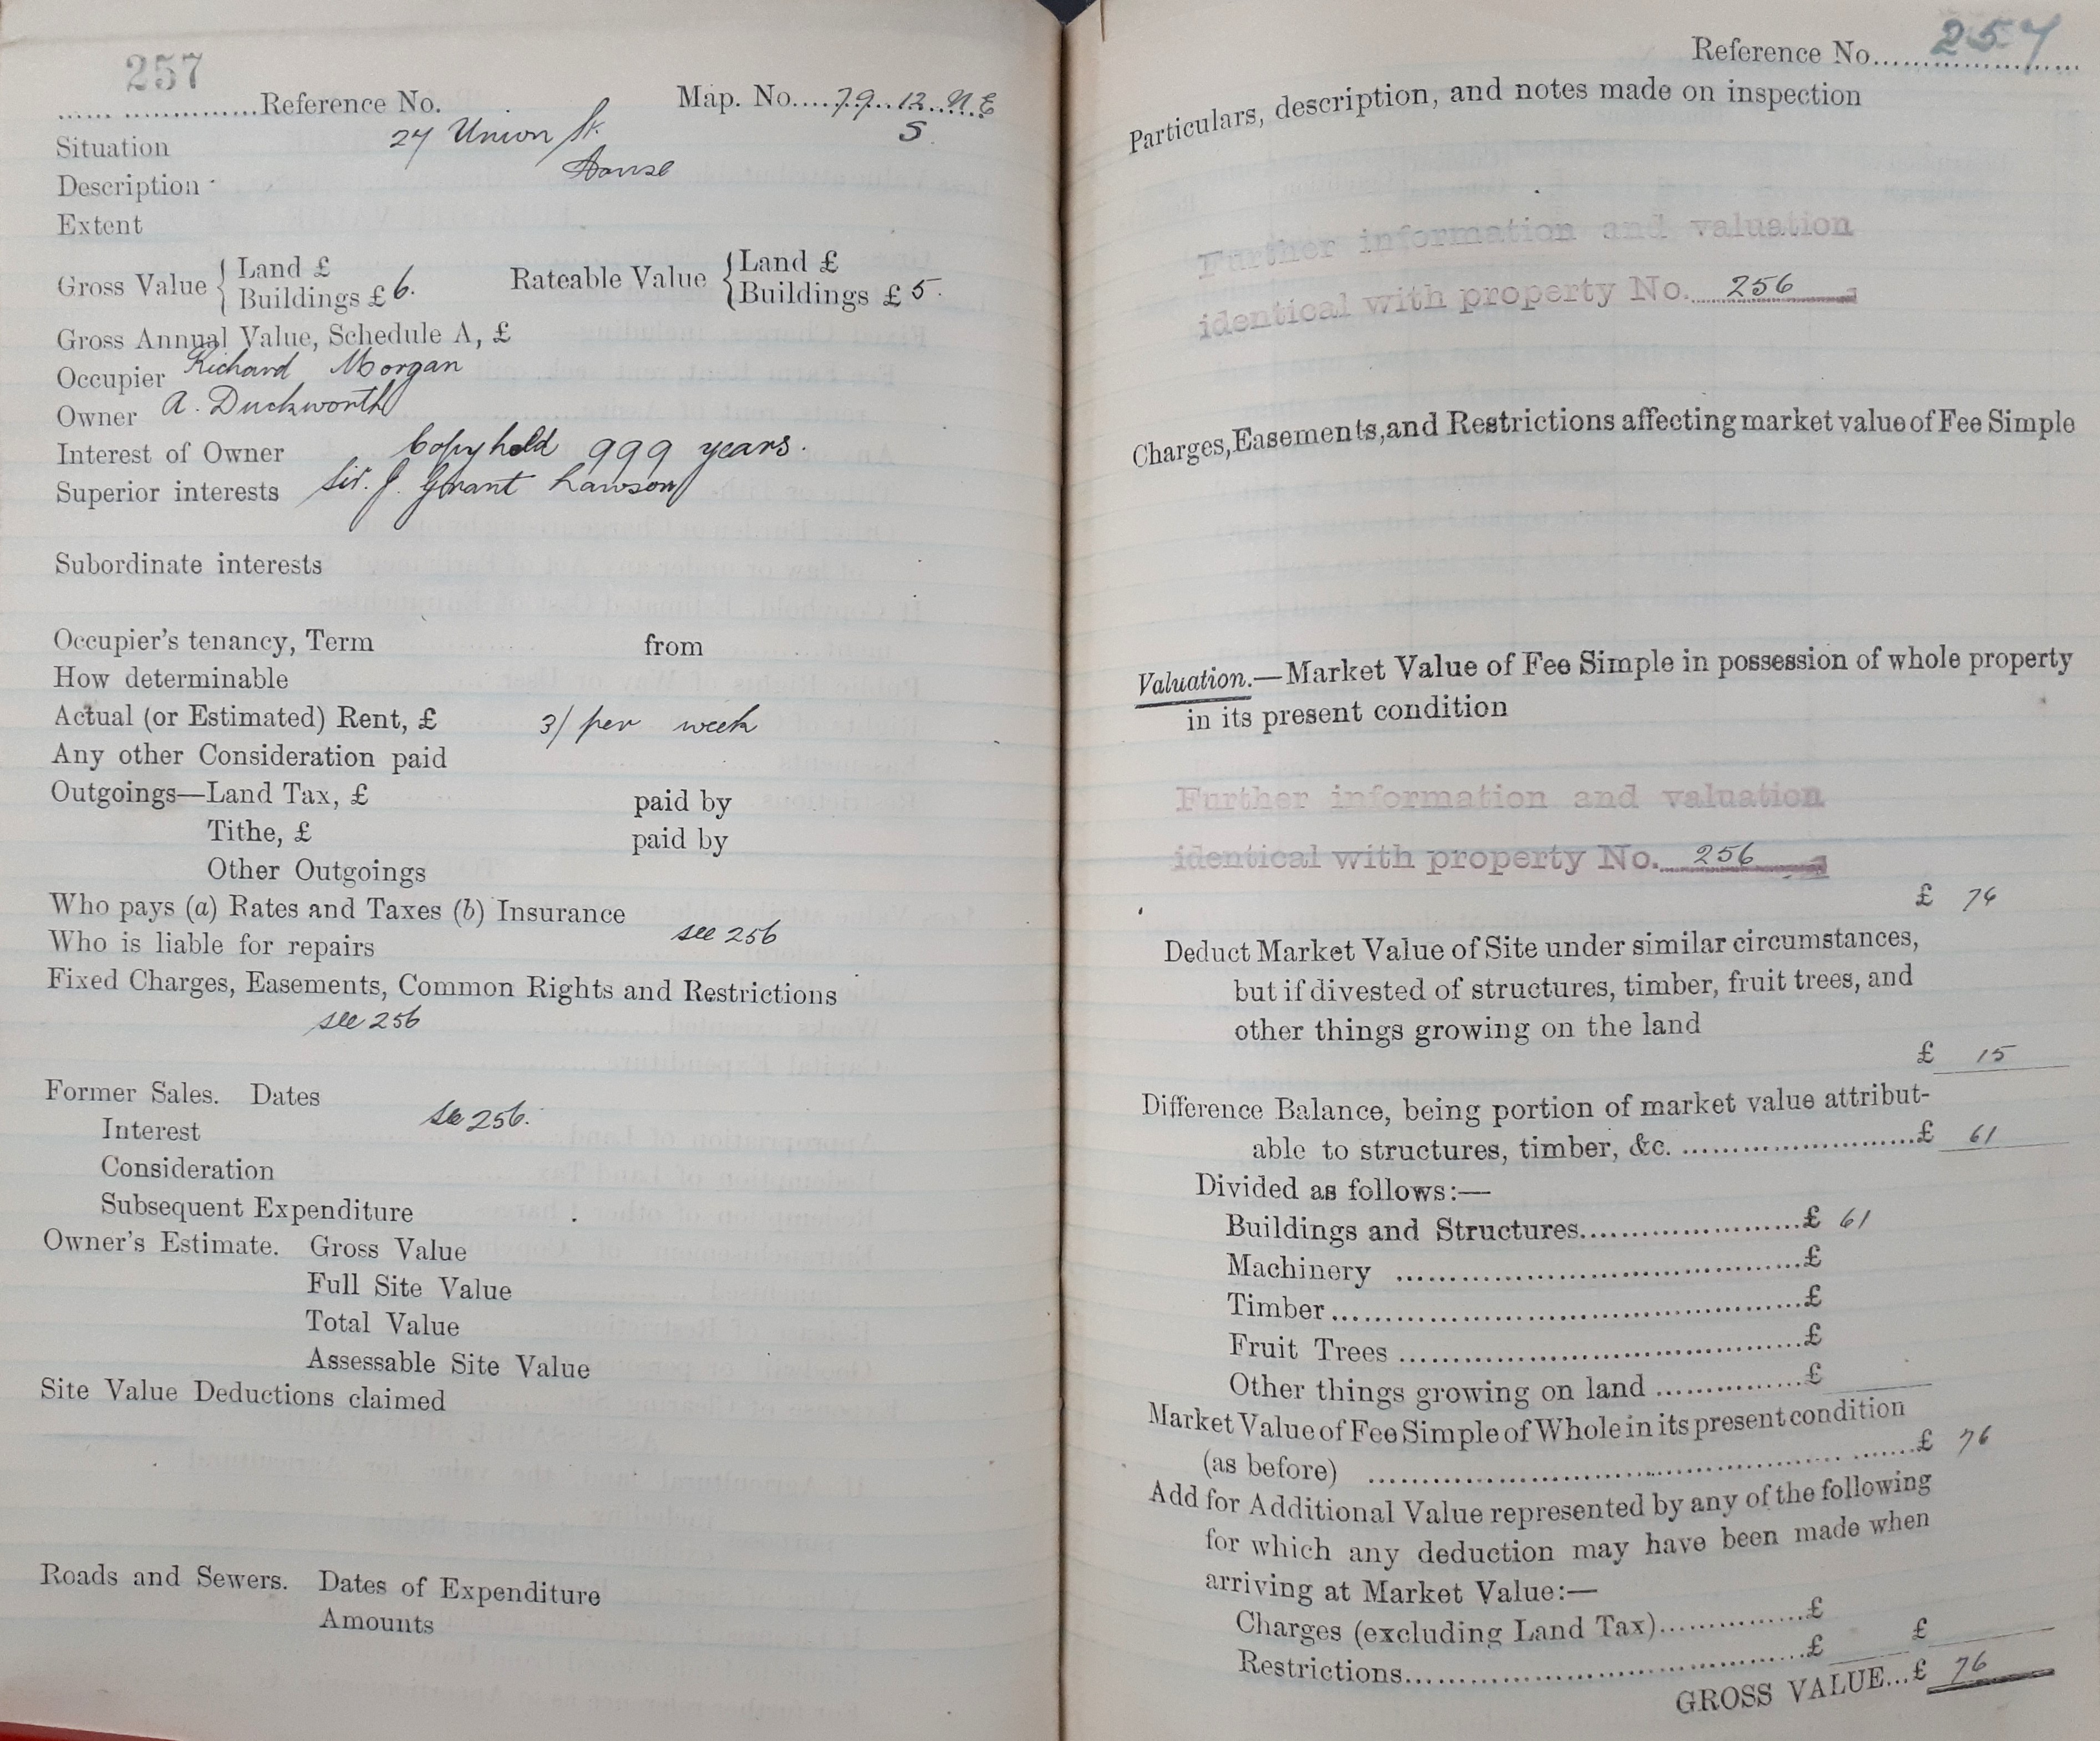 257
...... ...............Reference No. Map. No....79..12..N.E
S
Situation 27 Union St.
Description House
Extent
Gross Value { Land £ Rateable Value { Land £
Buildings £ 6. Buildings £ 5.
Gross Annual Value, Schedule A, £
Occupier Richard Morgan
Owner A. Duckworth
Interest of Owner Copyhold 999 years.
Superior interests Sir. J. Grant Lawson
Subordinate interests
Occupier's tenancy, Term from
How determinable
Actual (or Estimated) Rent, £ 3/ per week
Any other Consideration paid
Outgoings—Land Tax, £ paid by
Tithe, £ paid by
Other Outgoings
Who pays (a) Rates and Taxes (b) Insurance
see 256
Who is liable for repairs
Fixed Charges, Easements, Common Rights and Restrictions
see 256
Former Sales. Dates
see 256.
Interest
Consideration
Subsequent Expenditure
Owner's Estimate. Gross Value
Full Site Value
Total Value
Assessable Site Value
Site Value Deductions claimed
Roads and Sewers. Dates of Expenditure
Amounts
Reference No. 257
Particulars, description, and notes made on inspection
Further information and valuation
identical with property No. 256
Charges, Easements, and Restrictions affecting market value of Fee Simple
Valuation.—Market Value of Fee Simple in possession of whole property
in its present condition
Further information and valuation
identical with property No. 256
£ 76
Deduct Market Value of Site under similar circumstances,
but if divested of structures, timber, fruit trees, and
other things growing on the land
£ 15
Difference Balance, being portion of market value attribut-
able to structures, timber, &c. ...........................£ 61
Divided as follows:—
Buildings and Structures.........................£ 61
Machinery .............................................£
Timber....................................................£
Fruit Trees .............................................£
Other things growing on land ................£
Market Value of Fee Simple of Whole in its present condition
(as before) ...............................................................£ 76
Add for Additional Value represented by any of the following
for which any deduction may have been made when
arriving at Market Value:—
Charges (excluding Land Tax)................£
£
Restrictions.............................................£
GROSS VALUE...£ 76